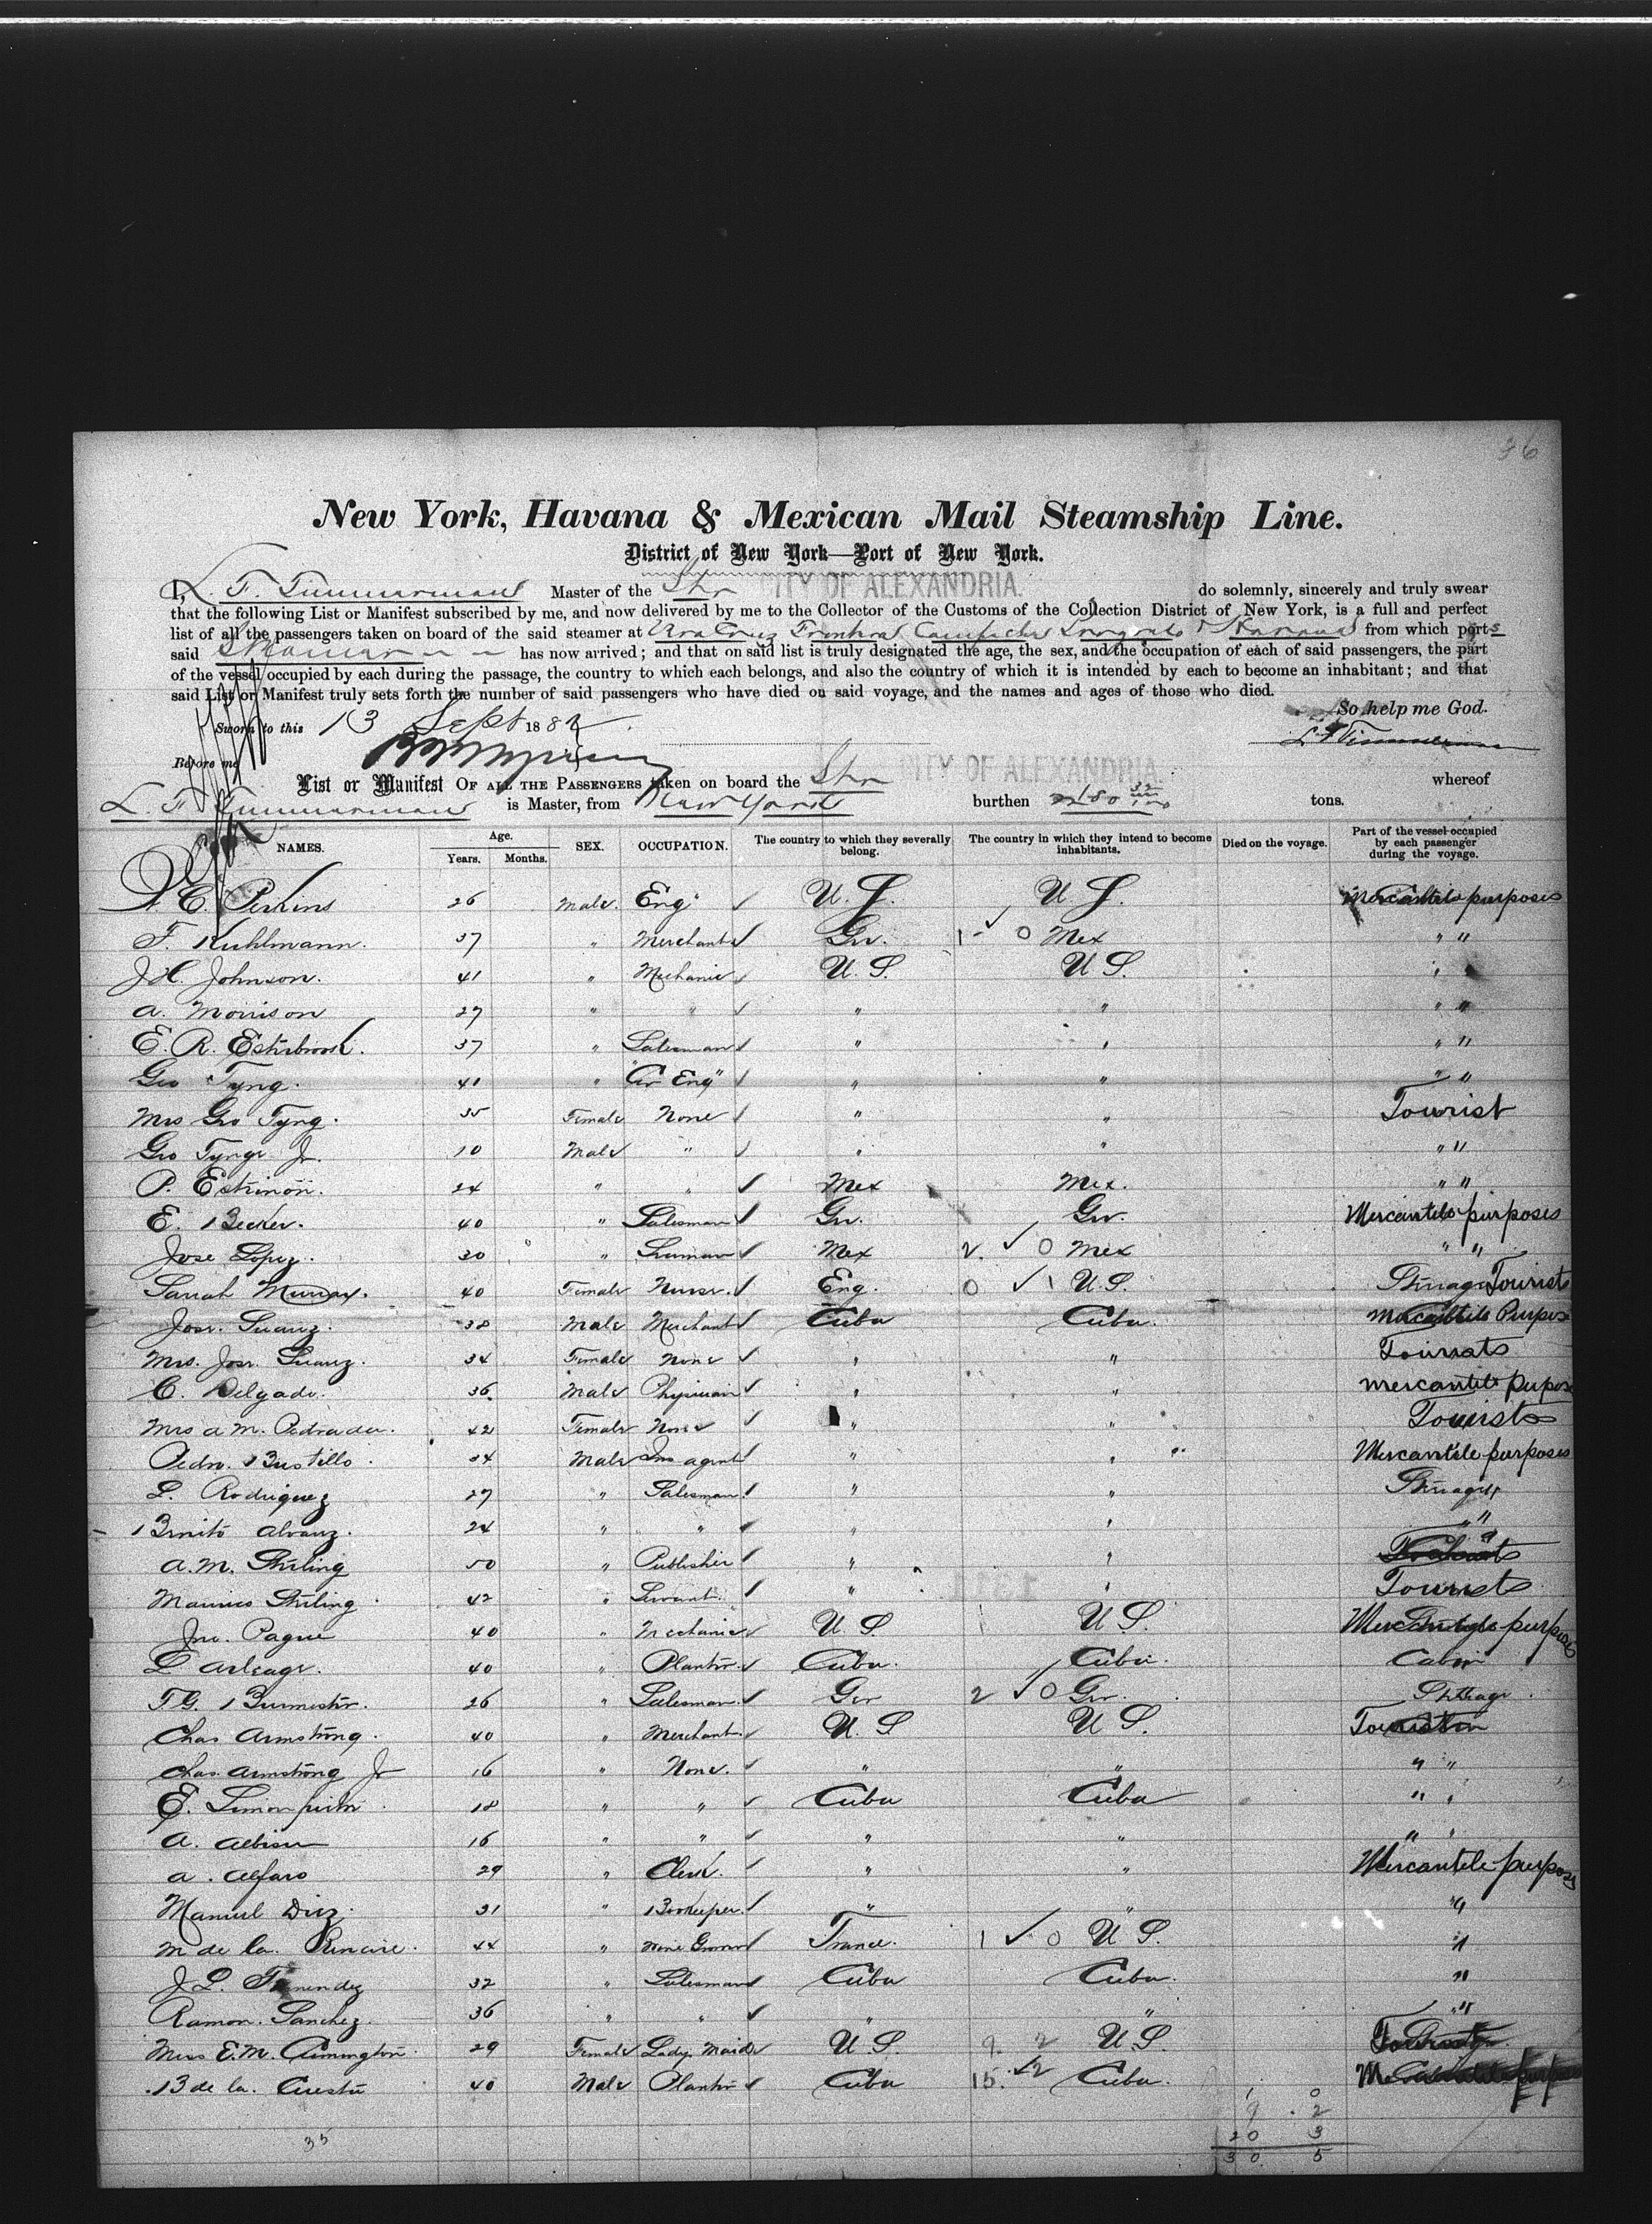 36
New York, Havana & Mexican Mail Steamship Line.
District of New York—Port of New York.
I, L. F. Timmermann Master of the Str CITY OF ALEXANDRIA. do solemnly, sincerely and truly swear
that the following List or Manifest subscribed by me, and now delivered by me to the Collector of the Customs of the Collection District of New York, is a full and perfect
list of all the passengers taken on board of the said steamer at Vera Cruz Frontera Campeche Progreso & Havana from which ports
said Steamer has now arrived; and that on said list is truly designated the age, the sex, and the occupation of each of said passengers, the part
of the vessel occupied by each during the passage, the country to which each belongs, and also the country of which it is intended by each to become an inhabitant; and that
said List or Manifest truly sets forth the number of said passengers who have died on said voyage, and the names and ages of those who died.
So help me God.
Sworn to this 13 Sept 1882
L F Timmermann
Before me
List or Manifest OF ALL THE PASSENGERS taken on board the Str CITY OF ALEXANDRIA. whereof
L. F. Timmermann is Master, from New York burthen 2480 tons.
NAMES. Age. Years. Months. SEX. OCCUPATION. The country to which they severally belong. The country in which they intend to become inhabitants. Died on the voyage. Part of the vessel occupied by each passenger during the voyage.
C. Perkins 26 Male. Eng U. S. U S. Mercantile purposes
F. Kuhlmann. 37 " Merchant Ger. 1 0 Mex " "
J H. Johnson. 41 " Mechanic U. S. U S. "
A. Morrison 27 " " " " " "
E. R. Esterbrook. 37 " Salesman " " " "
Geo Tyng. 41 " Civ Eng " " " "
Mrs Geo Tyng. 35 Female None " " Tourist
Geo Tyng Jr. 10 Male " " " " "
P. 24 " " Mex Mex. " "
E. Becker. 40 " Salesman Ger. Ger. Mercantile purposes
Jose Lopez. 30 " Seaman Mex 2 0 Mex " "
Sarah Murray. 40 Female Nurse. Eng. 0 1 U.S. Steerage Tourists
Jose. Suarez. 38 Male Merchant Cuba Cuba. Mercantile Purpose
Mrs. Jose. Suarez. 34 Female None " " Tourists
C. Delgado. 36 Male Physician " " mercantile purpose
Mrs A M. Pedrada. 42 Female None " " Tourists
Pedro. Bustillo. 34 Male Ins agent " " Mercantile purposes
L. Rodriguez 27 " Salesman " " Steerage
Benito Alvarez. 24 " " " " " "
A. M. Stirling 50 " Publisher " " Tourists
Maurico Stirling 42 " Servant. " " Tourists
Jno. Pague 40 " Mechanic U S. U S. Mercantile purpose
L Arteaga. 40 " Planter. Cuba. Cuba. Cabin
F. G. Burmester. 26 " Salesman. Ger 2 0 Ger. Steerage.
Chas Armstrong. 40 " Merchant. U. S U S. Tourist
Chas. Armstrong Jr 16 " None. " " " "
E. 18 " " Cuba Cuba " "
A. Albisu 16 " " " " " "
A. Alfaro 29 " Clerk. " " Mercantile purposes
Manuel Diez. 31 " Bookeeper. " " "
M de la. 44 " France. 1 0 U S. "
J L. 32 " Salesman Cuba Cuba. "
Ramon. Sanchez. 36 " " " " "
Miss E. M. Armington. 29 Female Lady Maid U. S. 9. 2 U S.
B de la. Cuesta 40 Male Planter Cuba 15. 2 Cuba.
1 0
9 2
20 3
30. 5
35